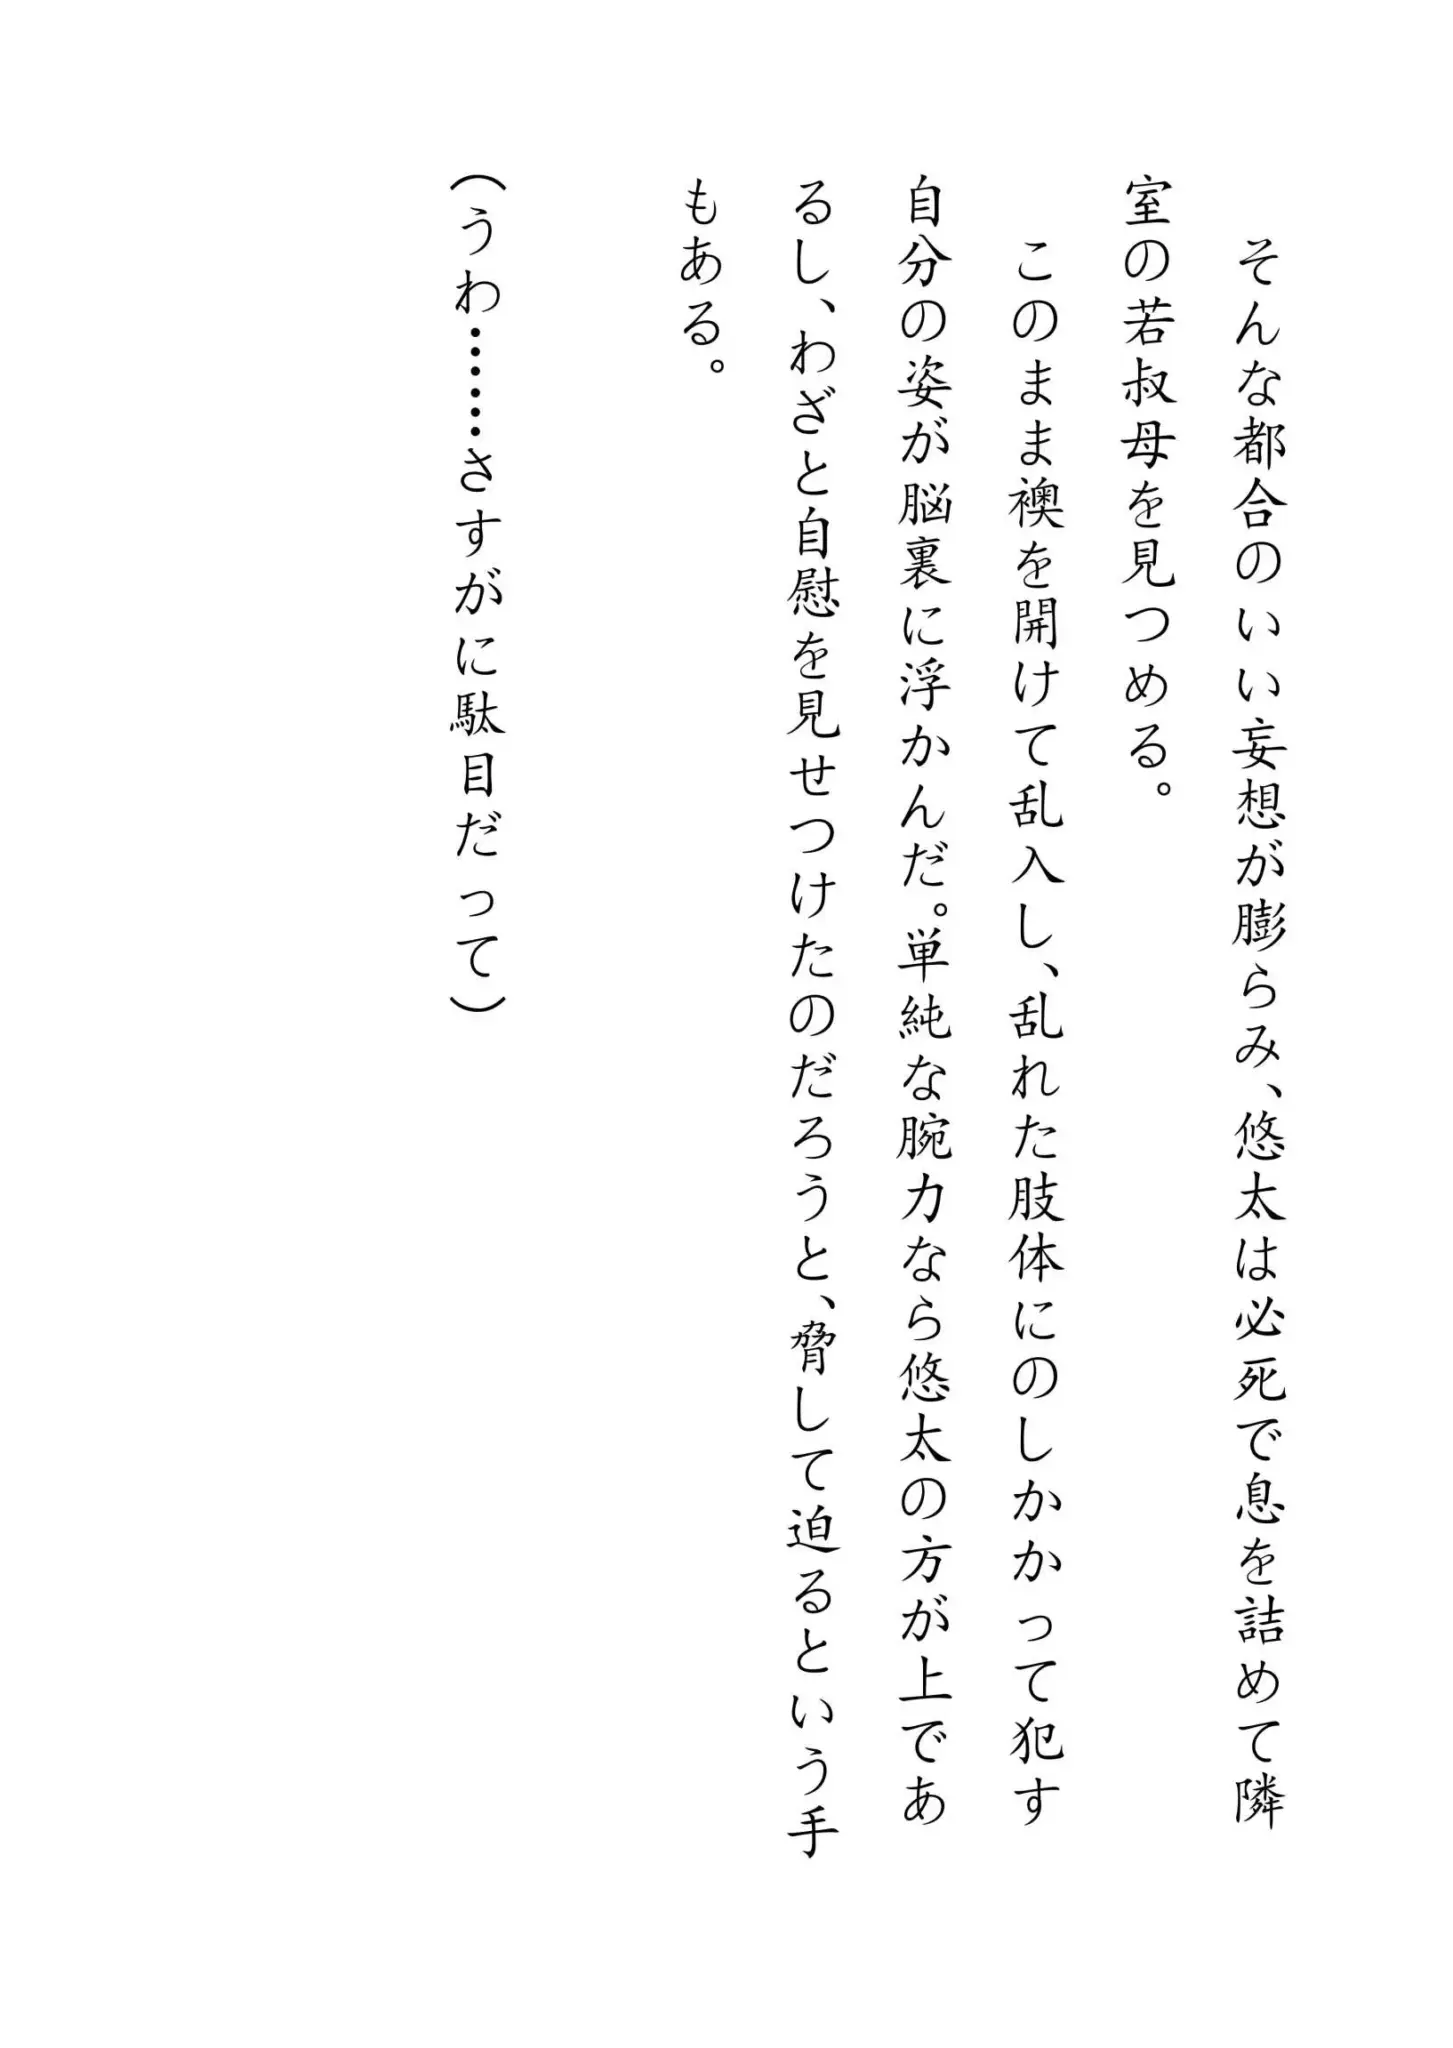 そんな都合のいい妄想が膨らみ、悠太は必死で息を詰めて隣
室の若叔母を見つめる。
　このまま襖を開けて乱入し、乱れた肢体にのしかかって犯す
自分の姿が脳裏に浮かんだ。単純な腕力なら悠太の方が上であ
るし、わざと自慰を見せつけたのだろうと、脅して迫るという手
もある。
（うわ……さすがに駄目だって）